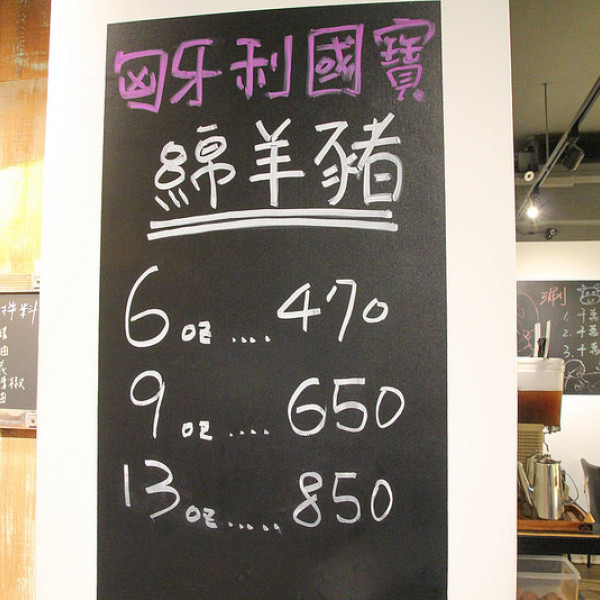 匈牙利國寶
綿羊豬
6 oz .... 470
9 oz .... 650
13 oz ..... 850
涮
1. 
2. 
3.